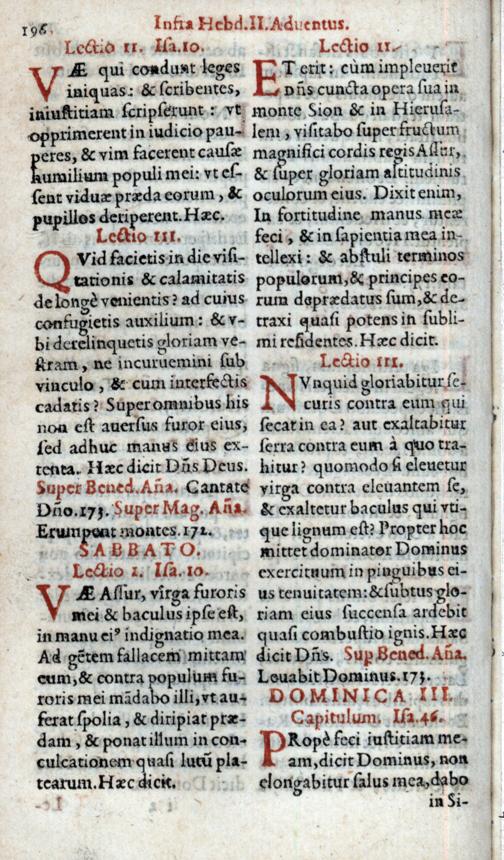 196.
Infra Hebd. II. Aduentus.
Lectio II. Isa. 10.
VÆ qui condunt leges
iniquas: & scribentes,
iniustitiam scripserunt: vt
opprimerent in iudicio pau-
peres, & vim facerent causæ
humilium populi mei: vt es-
sent viduæ præda eorum, &
pupillos deriperent. Hæc.
Lectio III.
QVid facietis in die visi-
tationis & calamitatis
de longè venientis? ad cuius
confugietis auxilium: & v-
bi derelinquetis gloriam ve-
stram, ne incuruemini sub
vinculo, & cum interfectis
cadatis? Super omnibus his
non est auersus furor eius,
sed adhuc manus eius ex-
tenta. Hæc dicit Dñs Deus.
Super Bened. Aña. Cantate
Dño. 173. Super Mag. Aña.
Erumpent montes. 172.
SABBATO.
Lectio I. Isa. 10.
VÆ Assur, virga furoris
mei & baculus ipse est,
in manu eiꝰ indignatio mea.
Ad gẽtem fallacem mittam
eum, & contra populum fu-
roris mei mãdabo illi, vt au-
ferat spolia, & diripiat præ-
dam, & ponat illum in con-
culcationem quasi lutũ pla-
tearum. Hæc dicit.
Lectio II.
ET erit: cùm impleuerit
Dñs cuncta opera sua in
monte Sion & in Hierusa-
lem, visitabo super fructum
magnifici cordis regis Assur,
& super gloriam altitudinis
oculorum eius. Dixit enim,
In fortitudine manus meæ
feci, & in sapientia mea in-
tellexi: & abstuli terminos
populorum, & principes eo-
rum deprædatus sum, & de-
traxi quasi potens in subli-
mi residentes. Hæc dicit.
Lectio III.
NVnquid gloriabitur se-
curis contra eum qui
secat in ea? aut exaltabitur
serra contra eum à quo tra-
hitur? quomodo si eleuetur
virga contra eleuantem se,
& exaltetur baculus qui vti-
que lignum est? Propter hoc
mittet dominator Dominus
exercituum in pinguibus ei-
us tenuitatem: & subtus glo-
riam eius succensa ardebit
quasi combustio ignis. Hæc
dicit Dñs. Sup. Bened. Aña.
Leuabit Dominus. 173.
DOMINICA III.
Capitulum. Isa. 46.
PRopè feci iustitiam me-
am, dicit Dominus, non
elongabitur salus mea, dabo
in Si-